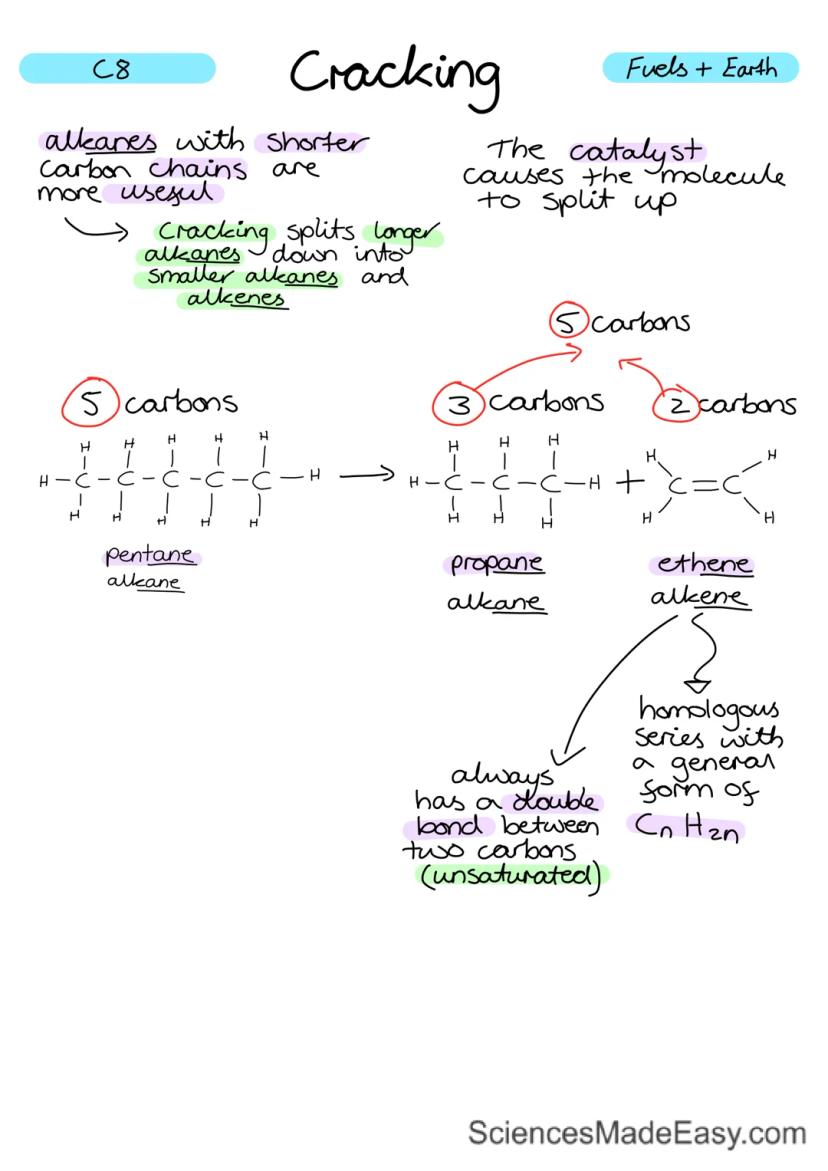 C8
Cracking
Fuels + Earth
alkanes with shorter
carbon chains are
more useful
Cracking splits longer
alkanes down into
smaller alkanes and
alkenes
The catalyst
causes the molecule
to split up
5 carbons
5 carbons
3 carbons
2 carbons
H H H H H
H - C - C - C - C - C - H
H H H H H
H H H
H - C - C - C - H
H H H
+
H H
C = C
H H
pentane
alkane
propane
alkane
ethene
alkene
always
has a double
bond between
two carbons
(unsaturated)
homologous
series with
a general
form of
CnH2n
SciencesMadeEasy.com